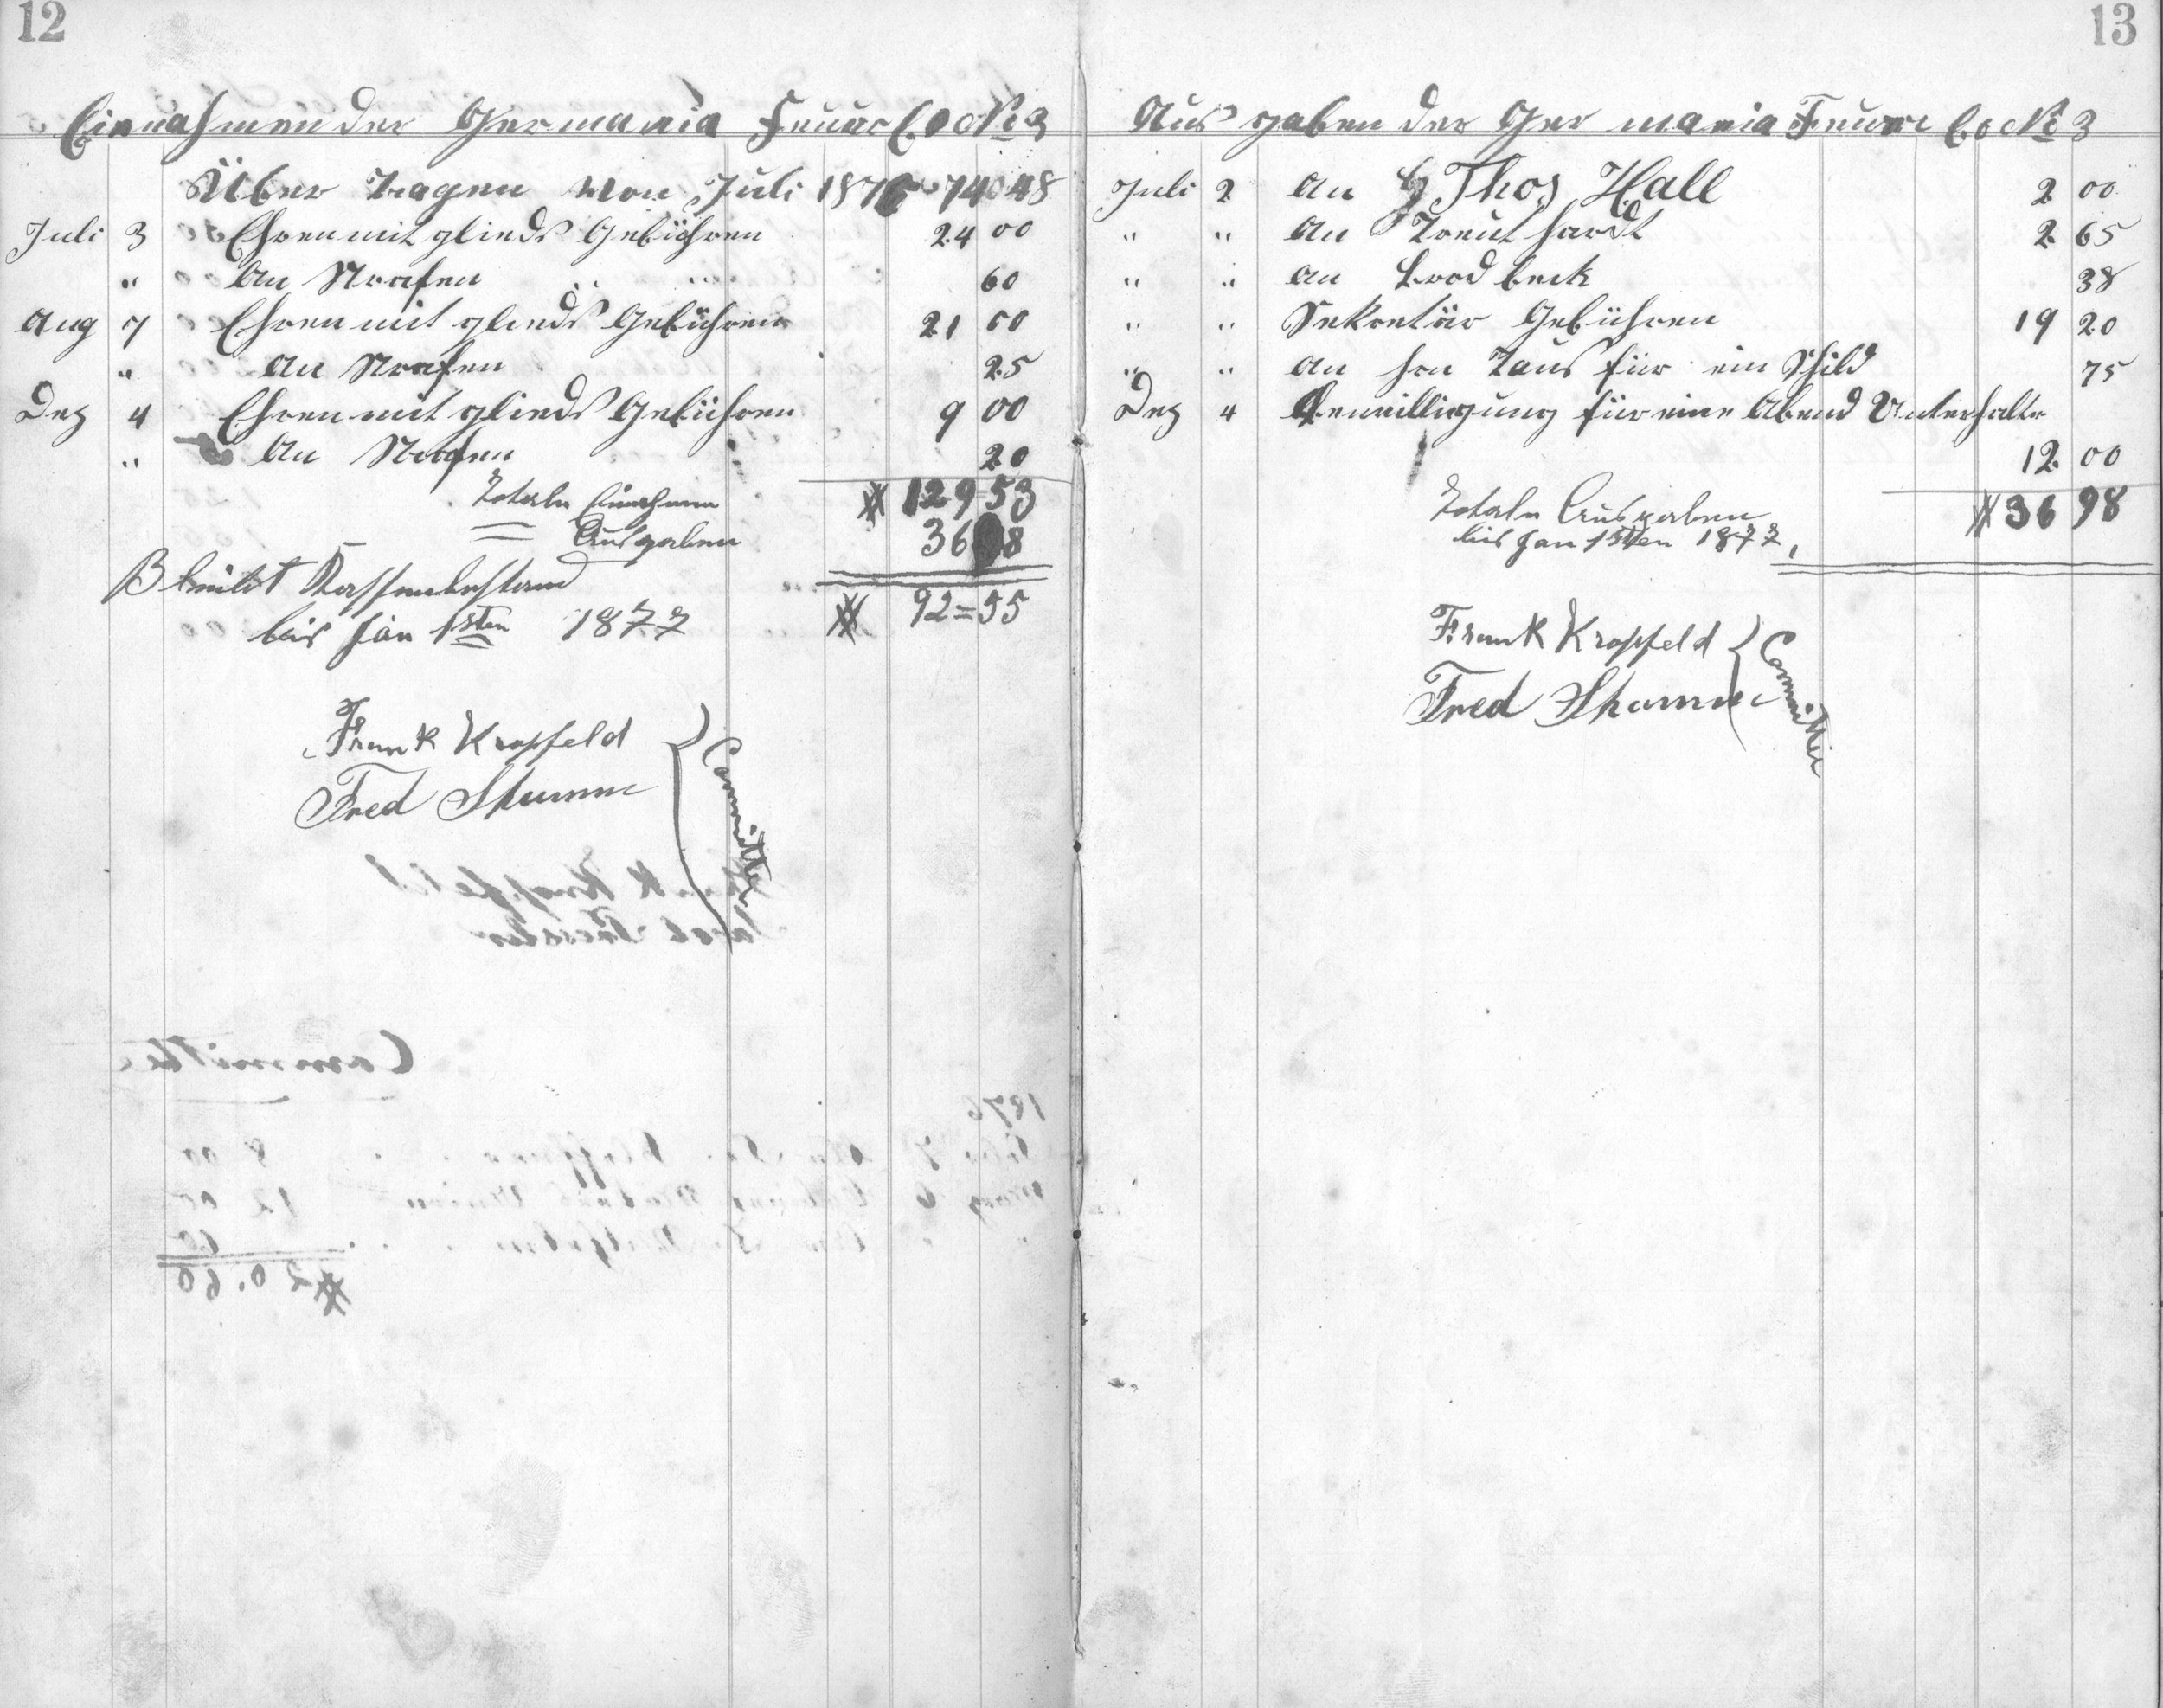 12
Einnahmen der Germania Feuer Co No 3
Über tragen von Juli 1876 74 48
Juli 3 Ehrenmitglieds Gebühren 24 00
" An Strafen 60
Aug 7 Ehrenmitglieds Gebühren 21 00
" An Strafen 25
Dez 4 Ehrenmitglieds Gebühren 9 00
" An Strafen 20
Totale Einnahmen $ 129 53
= Ausgaben 36 98
Bleibt Kassenbestand
bis Jan 1sten 1877 $ 92=55
Frank Kropfeld
Fred Thumm
Committee
13
Ausgaben der Germania Feuer Co No 3
Juli 2 An Thos Hall 2 00
" " An Treuthardt 2 65
" " An Brodbeck 38
" " Sekretär Gebühren 19 20
" " An Hrn Taus für ein Schild 75
Dez 4 Bewilligung für eine Abend Unterhaltu
12 00
Totale Ausgaben $ 36 98
bis Jan 1sten 1877
Frank Kropfeld
Fred Thumm
Committee